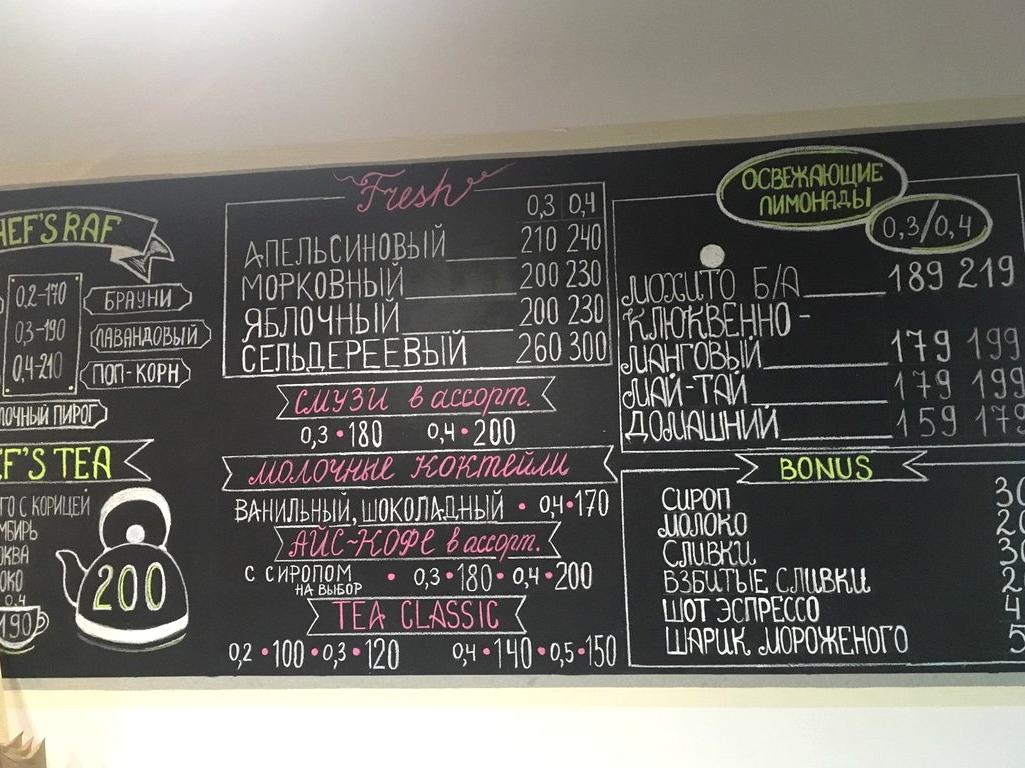 HEF'S RAF
0,2-170
0,3-190
0,4-210
БРАУНИ
ЛАВАНДОВЫЙ
ПОП-КОРН
ЛОЧНЫЙ ПИРОГ
EF'S TEA
ГО С КОРИЦЕЙ
МБИРЬ
ЮКВА
ОКО
0,4
190₽
200
Fresh
0,3 0,4
АПЕЛЬСИНОВЫЙ 210 240
МОРКОВНЫЙ 200 230
ЯБЛОЧНЫЙ 200 230
СЕЛЬДЕРЕЕВЫЙ 260 300
СМУЗИ в ассорт.
0,3 • 180 0,4 • 200
МОЛОЧНЫЕ КОКТЕЙЛИ
ВАНИЛЬНЫЙ, ШОКОЛАДНЫЙ • 0,4 • 170
АЙС-КОФЕ в ассорт.
С СИРОПОМ • 0,3 • 180 • 0,4 • 200
НА ВЫБОР
TEA CLASSIC
0,2 • 100 • 0,3 • 120 0,4 • 140 • 0,5 • 150
ОСВЕЖАЮЩИЕ
ЛИМОНАДЫ
0,3/0,4
МОХИТО Б/А 189 219
КЛЮКВЕННО-
МАНГОВЫЙ 179 199
МАЙ-ТАЙ 179 199
ДОМАШНИЙ 159 179
BONUS
СИРОП 30
МОЛОКО 20
СЛИВКИ 30
ВЗБИТЫЕ СЛИВКИ 2
ШОТ ЭСПРЕССО 4
ШАРИК МОРОЖЕНОГО 5